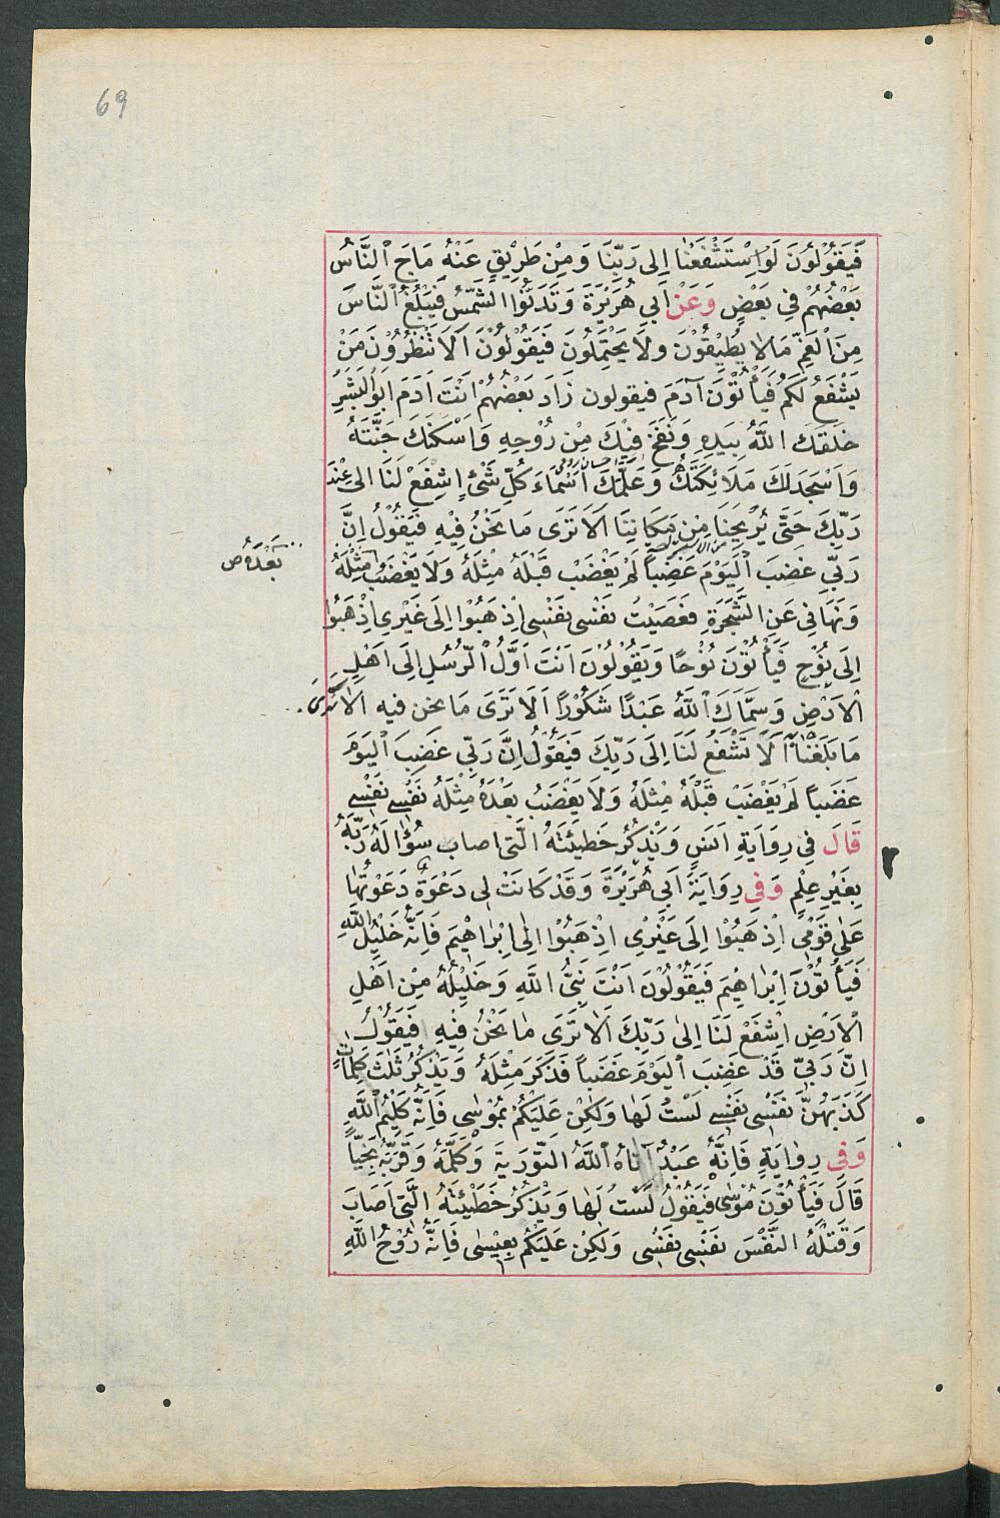 69
فَيَقُوْلُوْنَ لَوِاسْتَشْفَعْنَا اِلى رَبِّنَا وَمِنْ طَرِيْقٍ عَنْهُ مَاجَ النَّاسُ
بَعْضُهُمْ فِي بَعْضٍ وَعَنْ اَبِي هُرَيْرَةَ وَتَدْنُوا الشَّمْسُ فَيَبْلُغُ النَّاسَ
مِنَ الْغَمِّ مَالَا يُطِيْقُوْنَ وَلَا يَحْتَمِلُونَ فَيَقُوْلُوْنَ اَلَا تَنْظُرُوْنَ مَنْ
يَشْفَعُ لَكُمْ فَيَأْتُوْنَ آدَمَ فيقولون زَادَ بَعْضُهُمْ اَنْتَ اٰدَمَ اَبُو الْبَشَرِ
خَلَقَكَ اللّٰهُ بِيَدِهِ وَنَفَخَ فِيْكَ مِنْ رُوْحِهِ وَاَسْكَنَكَ جَنَّتَهُ
وَاَسْجَدَ لَكَ مَلَائِكَتَهُ وَعَلَّمَكَ اَسْمَاءَ كُلِّ شَيْئٍ اِشْفَعْ لَنَا الى عِنْدَ
رَبِّكَ حَتَّى يُرِيْحَنَا مِنْ مَكَانِنَا اَلَا تَرَى مَا نَحْنُ فِيْهِ فَيَقُوْلُ اِنَّ
رَبِّي غَضِبَ الْيَوْمَ غَضَبًا لَمْ يَغْضَبْ قَبْلَهُ مِثْلَهُ وَلَا يَغْضَبُ مِثْلَهُ
بَعْدَهُ ص
وَنَهَانِي عَنِ الشَّجَرَةِ فَعَصَيْتُ نَفْسِى نَفْسِى اِذْهَبُوْا اِلَى غَيْرِى اِذْهَبُوا
اِلَى نُوْحٍ فَيَأْتُوْنَ نُوْحًا وَيَقُوْلُوْنَ اَنْتَ اَوَّلُ الرُّسُلِ اِلَى اَهْلِ
الْاَرْضِ وَسَمَّاكَ اللّٰهُ عَبْدًا شَكُوْرًا اَلَا تَرَى مَا نحن فيه الا تَرَى
مَا بَلَغْنَا اَلَا تَشْفَعُ لَنَا اِلَى رَبِّكَ فَيَقُوْلُ اِنَّ رَبِّي غَضِبَ الْيَوْمَ
غَضَبًا لَمْ يَغْضَبْ قَبْلَهُ مِثْلَهُ وَلَا يَغْضَبُ بَعْدَهُ مِثْلَهُ نَفْسِى نَفْسِى
قَالَ فِي رِوَايَةِ اَنَسٍ وَيَذْكُرُ خَطِيْئَتَهُ الَّتى اصاب سُؤَالَهُ رَبَّهُ
بِغَيْرِ عِلْمٍ وَفِي رِوَايَةِ اَبِى هُرَيْرَةَ وَقَدْ كَانَتْ لِى دَعْوَةٌ دَعَوْتُهَا
عَلَى قَوْمِى اِذْهَبُوْا اِلَى غَيْرِى اِذْهَبُوْا اِلَى اِبْرَاهِيْمَ فَاِنَّهُ خَلِيْلُ اللّٰهِ
فَيَأْتُوْنَ اِبْرَاهِيْمَ فَيَقُوْلُوْنَ اَنْتَ نَبِىُّ اللّٰهِ وَخَلِيْلُهُ مِنْ اَهْلِ
الْاَرْضِ اِشْفَعْ لَنَا اِلَى رَبِّكَ اَلَا تَرَى مَا نَحْنُ فِيْهِ فَيَقُوْلُ
اِنَّ رَبِّيْ قَدْ غَضِبَ الْيَوْمَ غَضَبًا فَذَكَرَ مِثْلَهُ وَيَذْكُرُ ثَلٰثَ كَلِمَاتٍ
كَذَبَهُنَّ نَفْسِى نَفْسِى لَسْتُ لَهَا وَلٰكِنْ عَلَيْكُمْ بِمُوْسٰى فَاِنَّهُ كَلِيْمُ اللّٰهِ
وَفِى رِوَايَةٍ فَاِنَّهُ عَبْدٌ آتَاهُ اللّٰهُ التَّوْرَيةَ وَكَلَّمَهُ وَقَرَّبَهُ نَجِيًّا
قَالَ فَيَأْتُوْنَ مُوْسٰى فَيَقُوْلُ لَسْتُ لَهَا وَيَذْكُرُ خَطِيْئَتَهُ الَّتِى اَصَابَ
وَقَتْلَهُ النَّفْسَ نَفْسِى نَفْسِى وَلٰكِنْ عَلَيْكُمْ بِعِيْسٰى فَاِنَّهُ رُوْحُ اللّٰهِ